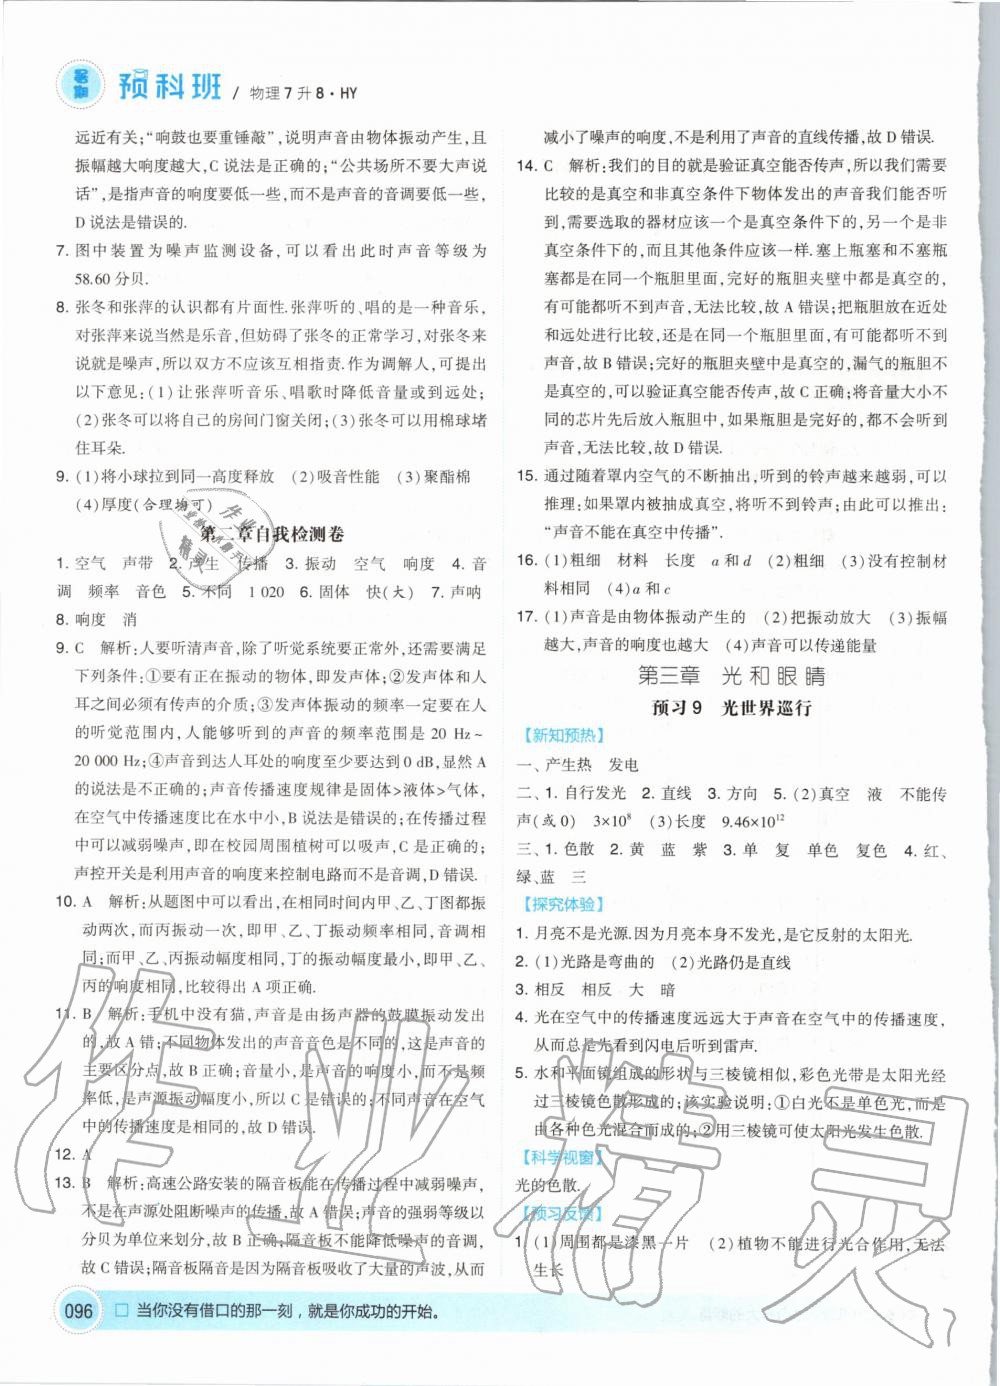 暑期
预科班 / 物理7升8·HY
远近有关;“响鼓也要重锤敲”,说明声音由物体振动产生,且
振幅越大响度越大,C说法是正确的;“公共场所不要大声说
话”,是指声音的响度要低一些,而不是声音的音调要低一些,
D说法是错误的.
7. 图中装置为噪声监测设备,可以看出此时声音等级为
58.60分贝.
8. 张冬和张萍的认识都有片面性.张萍听的、唱的是一种音乐,
对张萍来说当然是乐音,但妨碍了张冬的正常学习,对张冬来
说就是噪声,所以双方不应该互相指责.作为调解人,可提出
以下意见:(1)让张萍听音乐、唱歌时降低音量或到远处;
(2)张冬可以将自己的房间门窗关闭;(3)张冬可以用棉球堵
住耳朵.
9. (1)将小球拉到同一高度释放 (2)吸音性能 (3)聚酯棉
(4)厚度(合理均可)
第二章自我检测卷
1. 空气 声带 2. 产生 传播 3. 振动 空气 响度 4. 音
调 频率 音色 5. 不同 1 020 6. 固体 快(大) 7. 声呐
8. 响度 消
9. C 解析:人要听清声音,除了听觉系统要正常外,还需要满足
下列条件:①要有正在振动的物体,即声源;②在振动物体和人
耳之间必须有传声的介质;③发声体振动的频率一定要在人
的听觉范围内,人能够听到的声音的频率范围是20 Hz~
20 000 Hz;④声音到达人耳处的响度至少要达到0 dB,显然A
的说法是不正确的;声音传播速度规律是固体>液体>气体,
在空气中传播速度比在水中小,B说法是错误的;在传播过程
中可以减弱噪声,即在校园周围植树可以吸声,C是正确的;
声控开关是利用声音的响度来控制电路而不是音调,D错误.
10. A 解析:从题图中可以看出,在相同时间内甲、乙、丁图都振
动两次,而丙振动一次,即甲、乙、丁振动频率相同,音调相
同;而甲、乙、丙振动幅度相同,丁的振幅最小,即甲、乙、丙
的响度相同,比较得出A项正确.
11. B 解析:手机中没有猫,声音是由扬声器的鼓膜振动发出
的,故A错;不同物体发出的声音音色是不同的,这是声音的
主要区分点,故B正确;音量大小是指声音的响度,而不是频
率低,是声源振动幅度小,所以C是错误的;不同声音在空气
中的传播速度是相同的,故D错误.
12. A
13. B 解析:高速公路安装的隔音板能在传播过程中减弱噪声,
不是在声源处阻断噪声的传播,故A错误;声音的强弱等级以
分贝为单位来划分,故B正确;隔音板不能降低噪声的音调,
故C错误;隔音板隔音是因为其吸收了大量的声波,从而
减小了噪声的响度,不是利用了声音的直线传播,故D错误.
14. C 解析:我们的目的就是验证真空能否传声,所以我们需要
比较的是真空和非真空条件下物体发出的声音我们能否听
到,需要选取的器材应该一个是真空条件下的,另一个是非
真空条件下的,而其他条件应该一样.塞上瓶塞和不塞瓶
塞都是在同一个瓶胆里面,完好的瓶胆夹壁中都是真空的,
有可能都听不到声音,无法比较,故A错误;把瓶胆放在近处
和远处进行比较,还是在同一个瓶胆里面,有可能都听不到
声音,故B错误;完好的瓶胆夹壁中是真空的,漏气的瓶胆不
是真空的,可以验证真空能否传声,故C正确;将音量大小不
同的芯片先后放入瓶胆中,如果瓶胆是完好的,都可能听不到
声音,无法比较,故D错误.
15. 通过随着罩内空气的不断抽出,听到的铃声越来越弱,可以
推理:如果罩内被抽成真空,将听不到铃声,由此可以推出:
“声音不能在真空中传播”.
16. (1)粗细 材料 长度 a和d (2)粗细 (3)没有控制材
料相同 (4)a和c
17. (1)声音是由物体振动产生的 (2)把振动放大 (3)振幅
越大,声音的响度也越大 (4)声音可以传递能量
第三章 光和眼睛
预习9 光世界巡行
【新知预热】
一、产生热 发电
二、1. 自行发光 2. 直线 3. 方向 5. (2)真空 液 不能传
声(或0) 3×10⁸ (3)长度 9.46×10¹²
三、1. 色散 2. 黄 蓝 紫 3. 单 复 单色 复色 4. 红、
绿、蓝 三
【探究体验】
1. 月亮不是光源.因为月亮本身不发光,是它反射的太阳光.
2. (1)光路是弯曲的 (2)光路仍是直线
3. 相反 相反 大 暗
4. 光在空气中的传播速度远远大于声音在空气中的传播速度,
从而总是看到闪电后听到雷声.
5. 水和平面镜组成的形状与三棱镜相似,彩色光带是太阳光经
过三棱镜色散形成的;该实验说明:①白光不是单色光,而是
由各种色光混合而成的;②用三棱镜可使太阳光发生色散.
【科学视窗】
光的色散.
【预习反馈】
1. (1)周围都是漆黑一片 (2)植物不能进行光合作用,无法
生长
096 □ 当你没有借口的那一刻,就是你成功的开始。
作业精灵